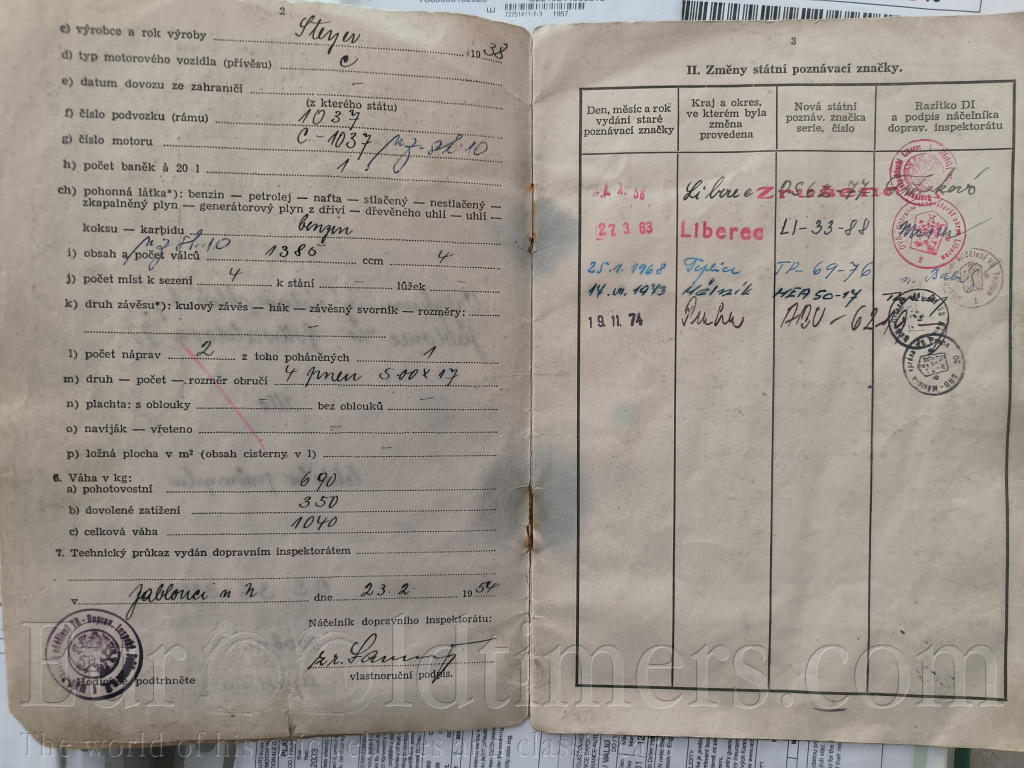 72751411-1-3 1957
2
c) výrobce a rok výroby Steyer 1938
d) typ motorového vozidla (přívěsu) C
e) datum dovozu ze zahraničí —
(z kterého státu)
f) číslo podvozku (rámu) 1037
g) číslo motoru C-1037
h) počet baněk à 20 l 1
ch) pohonná látka*): benzin — petrolej — nafta — stlačený — nestlačený —
zkapalněný plyn — generátorový plyn z dříví — dřevěného uhlí — uhlí —
koksu — karbidu benzin
i) obsah a počet válců 1385 ccm 4
j) počet míst k sezení 4 k stání — lůžek —
k) druh závěsu*): kulový závěs — hák — závěsný svorník — rozměry:
—
l) počet náprav 2 z toho poháněných 1
m) druh — počet — rozměr obručí 4 pneu 500x17
n) plachta: s oblouky — bez oblouků —
o) naviják — vřeteno —
p) ložná plocha v m² (obsah cisterny v l) —
6. Váha v kg:
a) pohotovostní 690
b) dovolené zatížení 350
c) celková váha 1040
7. Technický průkaz vydán dopravním inspektorátem
v Jablonci n N dne 23.2 1954
Náčelník dopravního inspektorátu:
vlastnoruční podpis.
podtrhněte
3
II. Změny státní poznávací značky.
Den, měsíc a rok
vydání staré
poznávací značky
Kraj a okres,
ve kterém byla
změna
provedena
Nová státní
poznáv. značka
serie, číslo
Razítko DI
a podpis náčelníka
doprav. inspektorátu
Liberec
22 3. 63 Liberec LI-33-88
25.1.1968 Teplice TP 69-76
1973 Mělník MEA 50-17
19 11 74 Praha
EuroOldtimers.com
The world of historic vehicles and classic